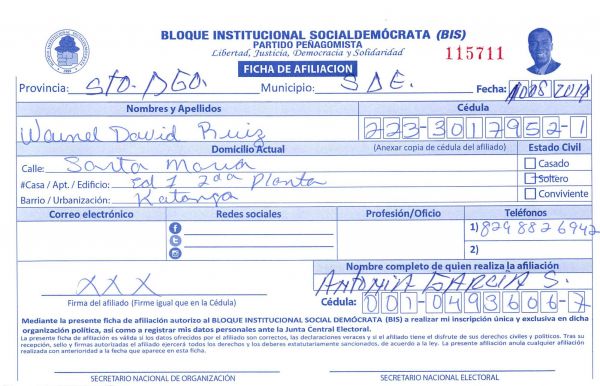 BLOQUE INSTITUCIONAL SOCIALDEMÓCRATA (BIS)
PARTIDO PEÑAGOMISTA
Libertad, Justicia, Democracia y Solidaridad
115711
FICHA DE AFILIACION
Provincia: STO. DGO. Municipio: S D E. Fecha: 2019
Nombres y Apellidos Cédula
David Ruiz 223-3017952-1
Domicilio Actual (Anexar copia de cédula del afiliado) Estado Civil
Calle: Santa Maria Casado
#Casa / Apt. / Edificio: Ed 1 2da Planta Soltero
Barrio / Urbanización: Katanga Conviviente
Correo electrónico Redes sociales Profesión/Oficio Teléfonos
1) 829 882 6942
2)
Nombre completo de quien realiza la afiliación
XXX ANTONIA GARCIA S.
Firma del afiliado (Firme igual que en la Cédula) Cédula: 001-0493606-7
Mediante la presente ficha de afiliación autorizo al BLOQUE INSTITUCIONAL SOCIAL DEMÓCRATA (BIS) a realizar mi inscripción única y exclusiva en dicha
organización política, así como a registrar mis datos personales ante la Junta Central Electoral.
La presente ficha de afiliación es válida si los datos ofrecidos por el afiliado son correctos, las declaraciones veraces y si el afiliado tiene el disfrute de sus derechos civiles y políticos. Tras su
recepción, sello y firmas autorizadas el afiliado ejercerá todos los derechos y los deberes estatutariamente sancionados, de acuerdo a la ley. La presente afiliación anula cualquier afiliación
realizada con anterioridad a la fecha que aparece en esta ficha.
SECRETARIO NACIONAL DE ORGANIZACIÓN SECRETARIO NACIONAL ELECTORAL